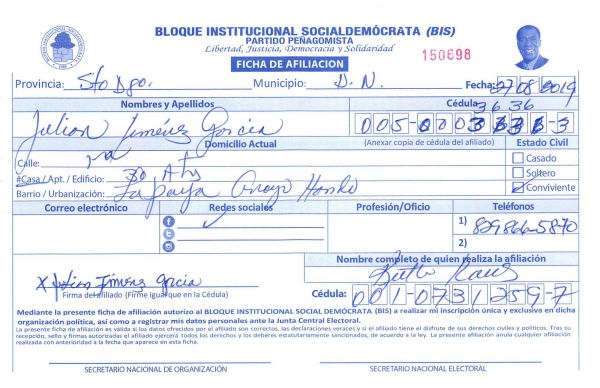 BLOQUE INSTITUCIONAL SOCIALDEMÓCRATA (BIS)
PARTIDO PEÑAGOMISTA
Libertad, Justicia, Democracia y Solidaridad
FICHA DE AFILIACION
150698
Provincia: Sto Dgo. Municipio: D. N. Fecha: 27/08/2019
Nombres y Apellidos
Julian Jiménez Garcia
Cédula
3636
005-000-3
(Anexar copia de cédula del afiliado)
Domicilio Actual
Estado Civil
Calle:
Casado
#Casa / Apt. / Edificio: 30
Soltero
Barrio / Urbanización: La paya Arroyo Hondo
Conviviente
Correo electrónico Redes sociales Profesión/Oficio Teléfonos
1) 829866-5870
2)
Nombre completo de quien realiza la afiliación
X Julian Jiménez Garcia
Firma del afiliado (Firme igual que en la Cédula)
Cédula: 001-0731259-7
Mediante la presente ficha de afiliación autorizo al BLOQUE INSTITUCIONAL SOCIAL DEMÓCRATA (BIS) a realizar mi inscripción única y exclusiva en dicha
organización política, así como a registrar mis datos personales ante la Junta Central Electoral.
La presente ficha de afiliación es válida si los datos ofrecidos por el afiliado son correctos, las declaraciones veraces y si el afiliado tiene el disfrute de sus derechos civiles y políticos. Tras su
recepción, sello y firmas autorizadas el afiliado ejercerá todos los derechos y los deberes estatutariamente sancionados, de acuerdo a la ley. La presente afiliación anula cualquier afiliación
realizada con anterioridad a la fecha que aparece en esta ficha.
SECRETARIO NACIONAL DE ORGANIZACIÓN SECRETARIO NACIONAL ELECTORAL